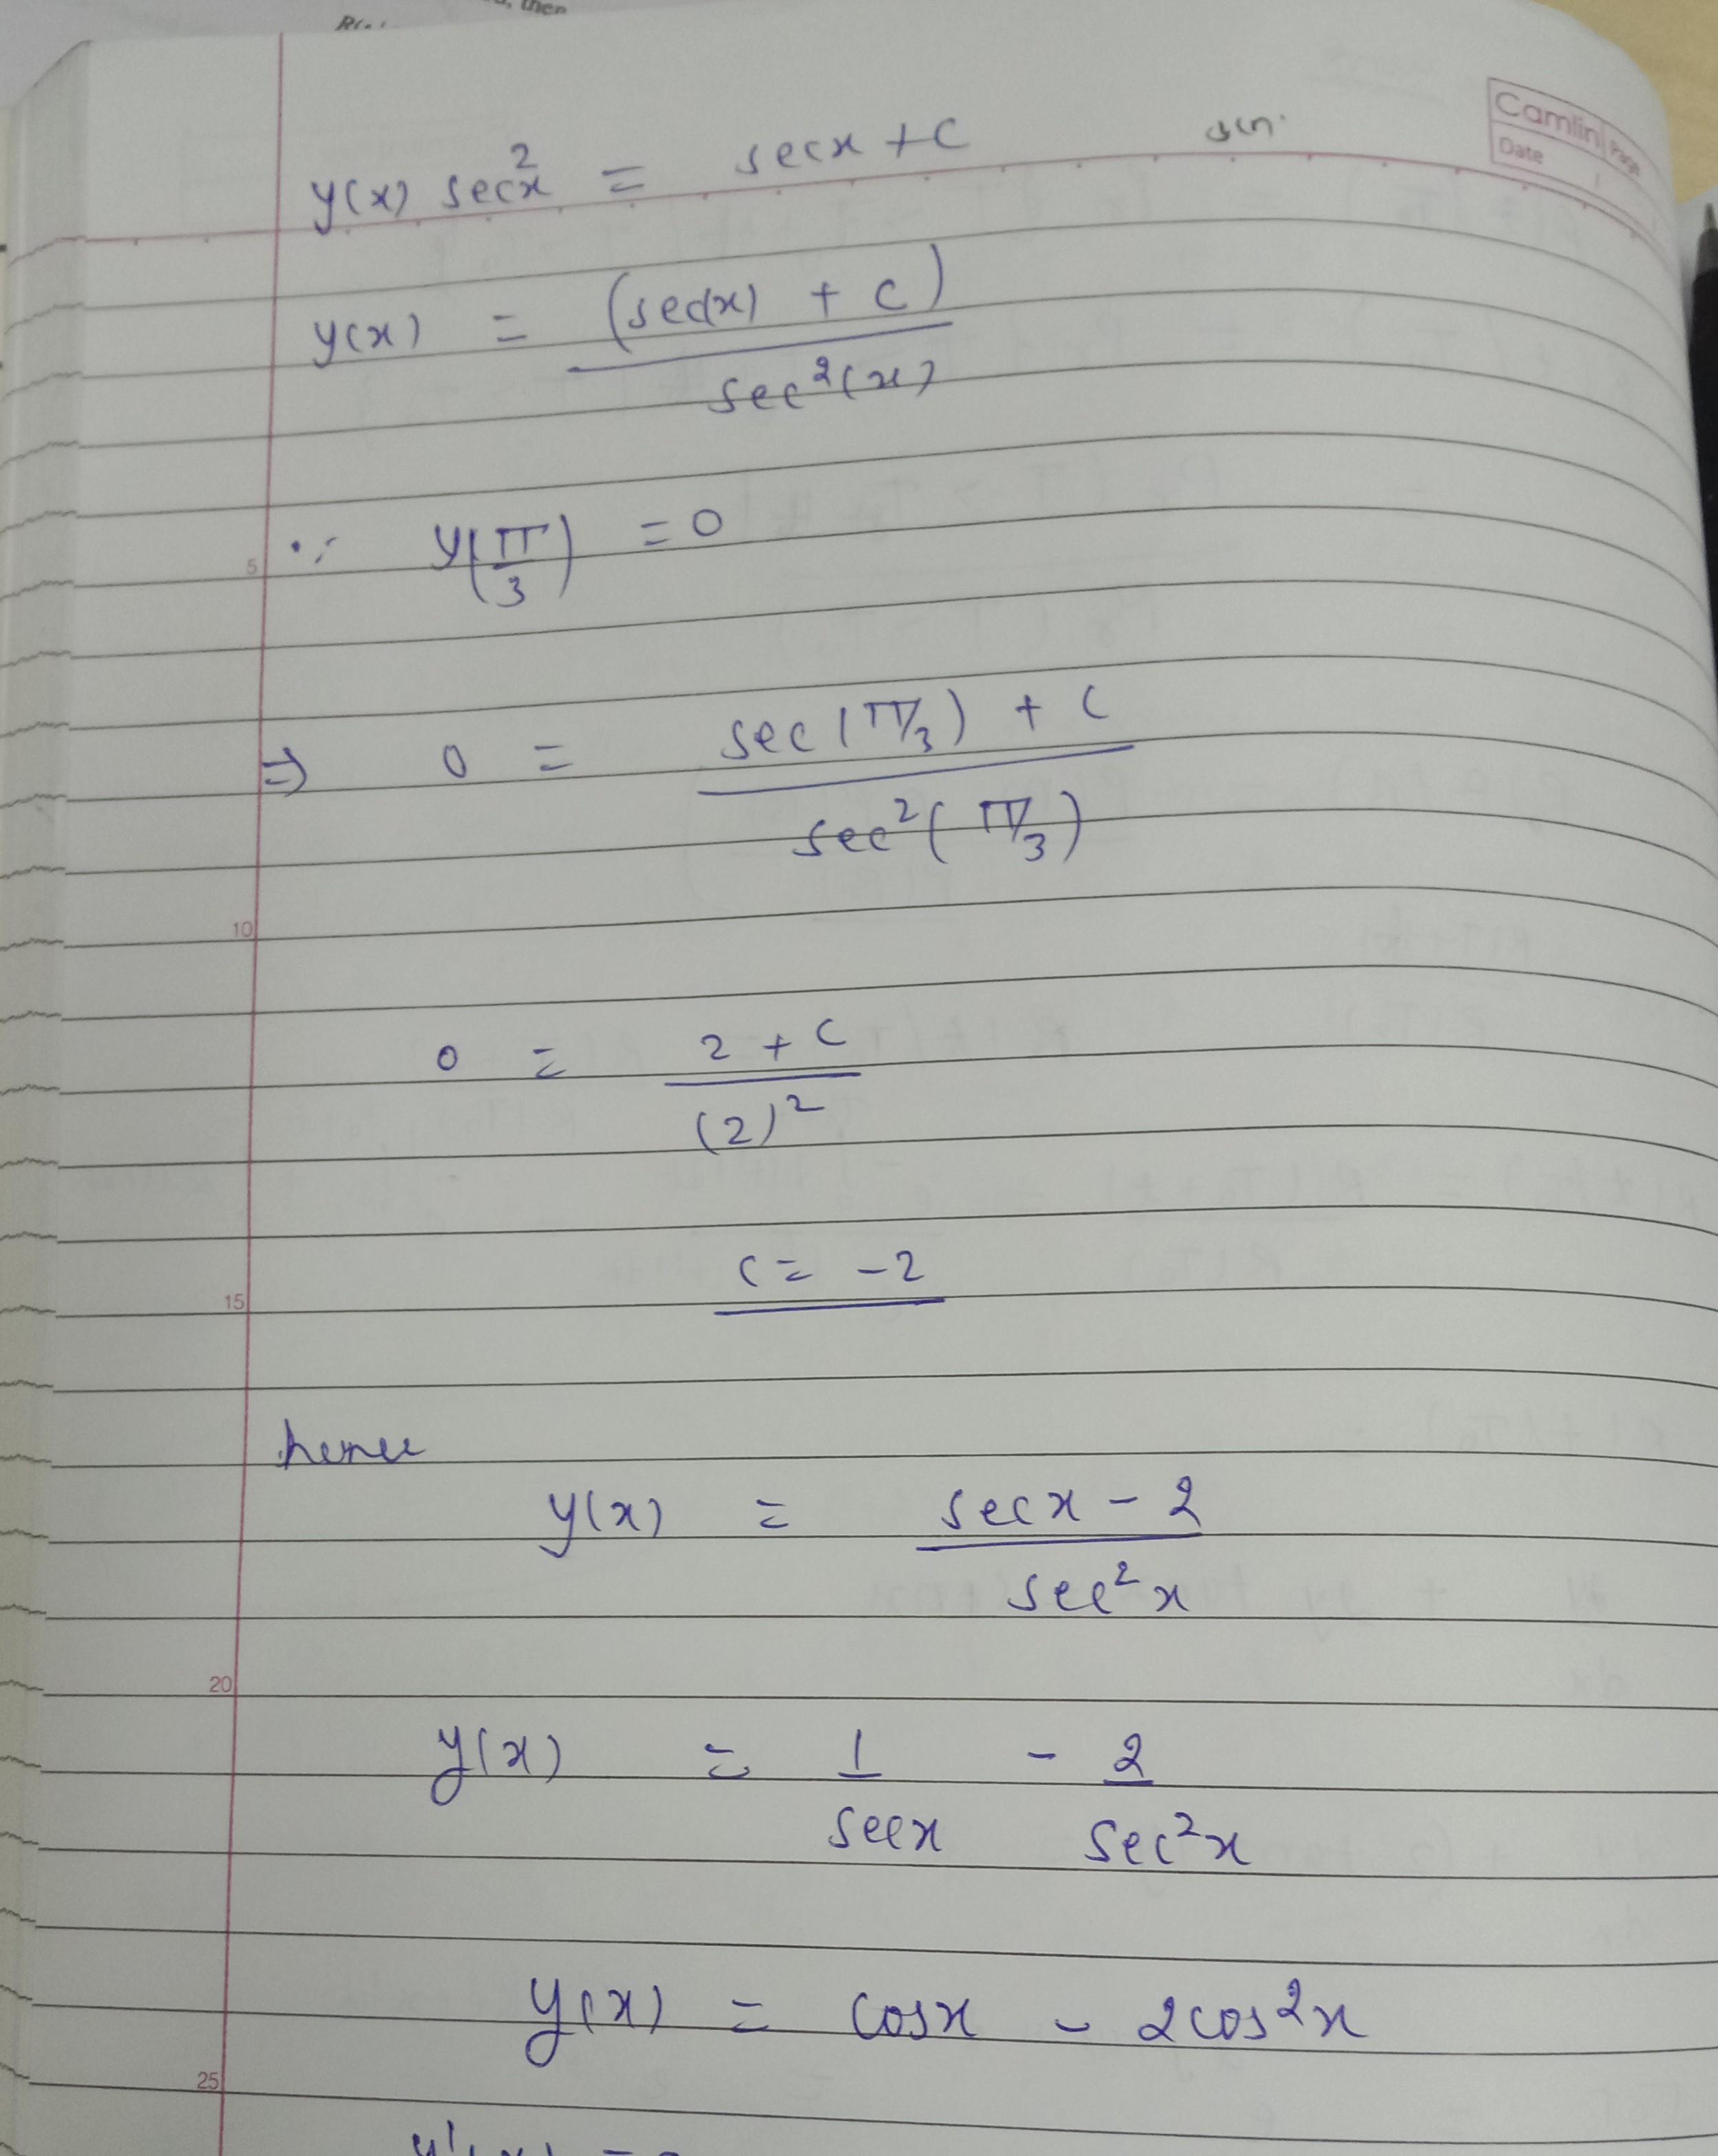 , then
Camlin Page
Date
y(x) sec²x = secx + c
y(x) = (sec(x) + c) / sec²(x)
∵ y(π/3) = 0
5
⇒ 0 = sec(π/3) + c / sec²(π/3)
10
0 = 2 + c / (2)²
c = -2
15
hence
y(x) = secx - 2 / sec²x
20
y(x) = 1/secx - 2/sec²x
y(x) = cosx - 2cos²x
25